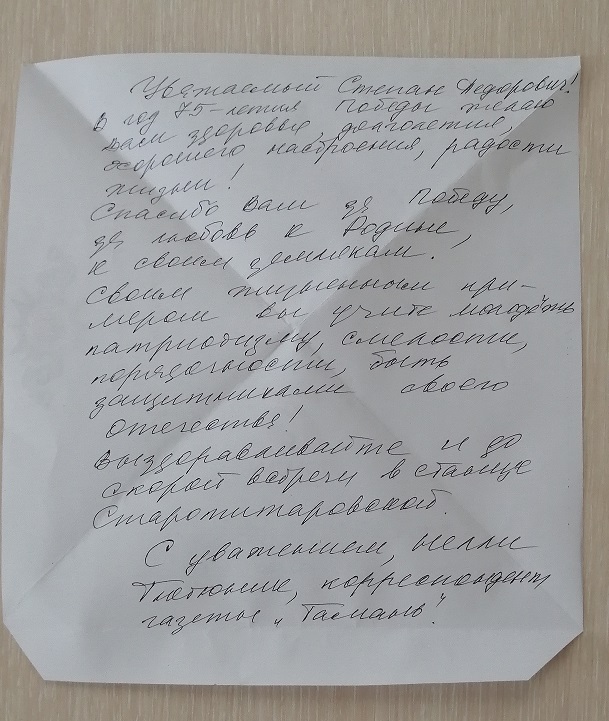 Уважаемый Степан Федорович!
В год 75-летия Победы желаю
Вам здоровья, долголетия,
хорошего настроения, радости
жизни!
Спасибо Вам за Победу,
за любовь к Родине,
к своим землякам.
Своим жизненным при-
мером вы учите молодёжь
патриотизму, смелости,
порядочности, быть
защитниками своего
отечества!
Выздоравливайте и до
скорой встречи в станице
Старотитаровской.
С уважением, Нелли
Тютюник, корреспондент
газеты „Тамань".